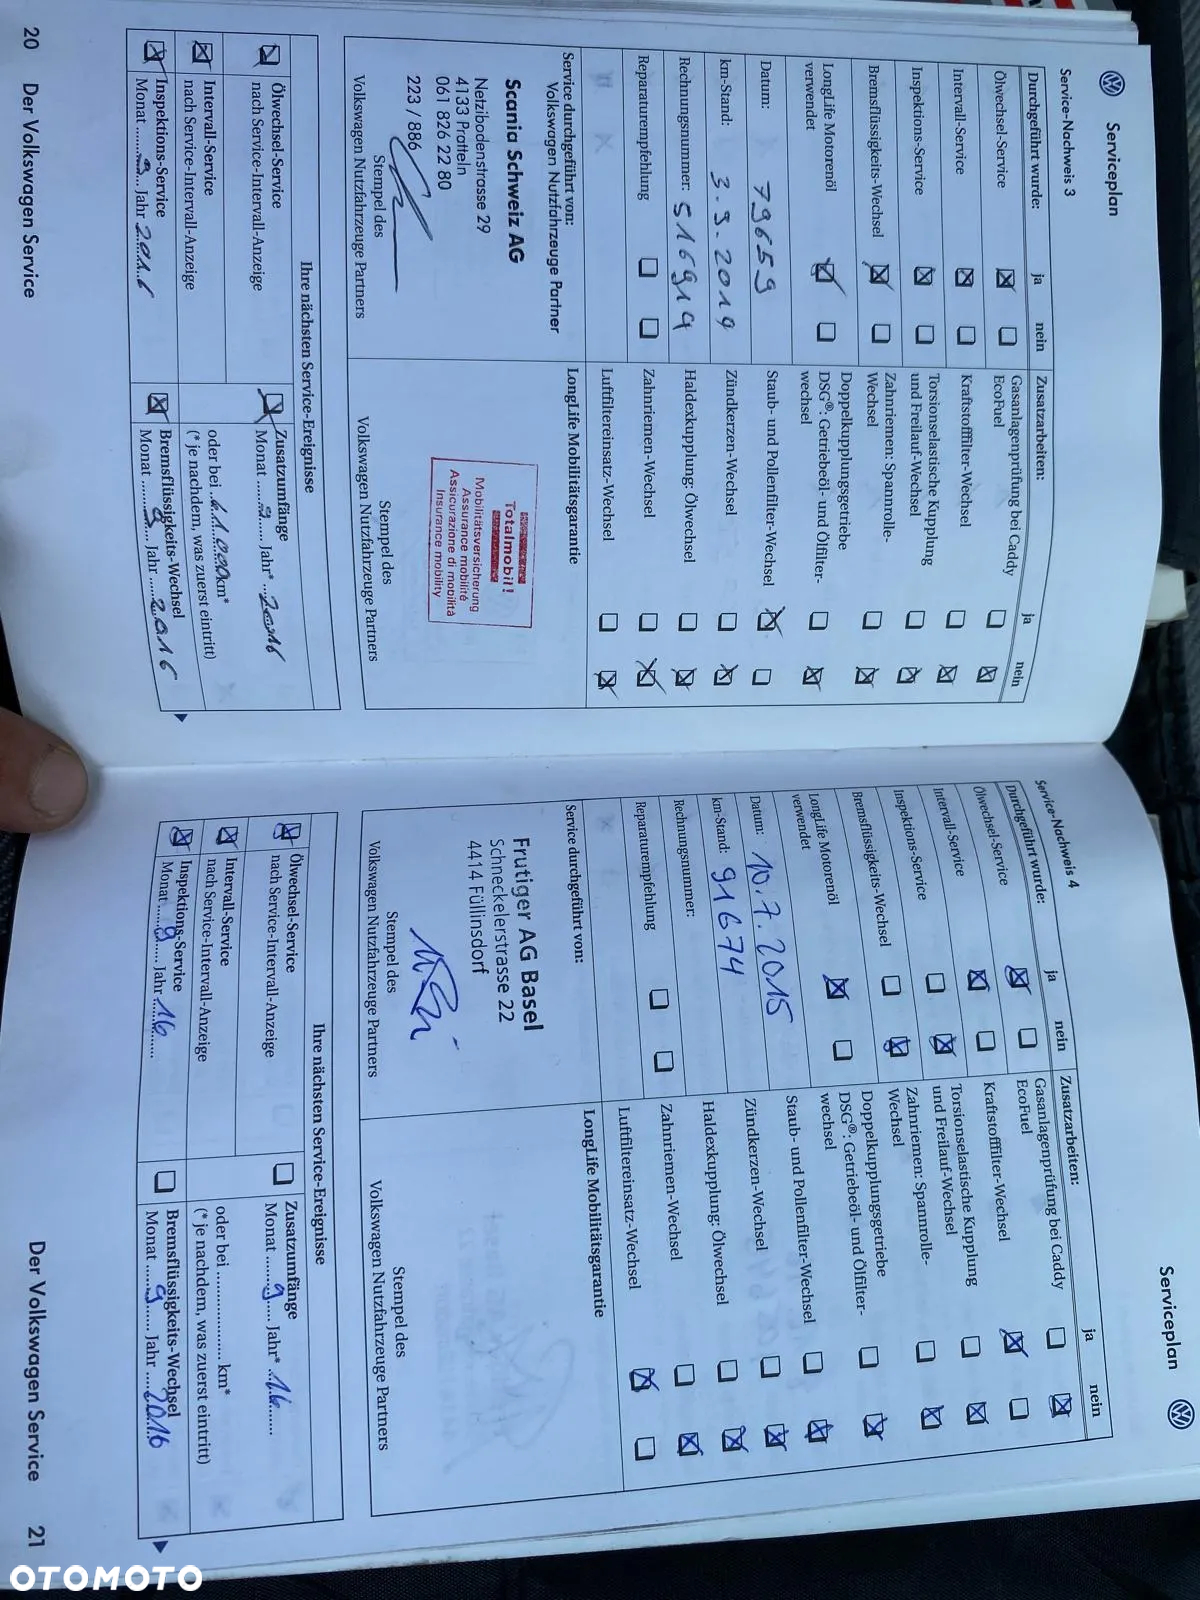 Serviceplan
Service-Nachweis 3
Durchgeführt wurde: ja nein
Ölwechsel-Service
Intervall-Service
Inspektions-Service
Bremsflüssigkeits-Wechsel
LongLife Motorenöl
verwendet
Datum: 79659
km-Stand: 3.9.2014
Rechnungsnummer: 516914
Reparaturempfehlung
Service durchgeführt von:
Volkswagen Nutzfahrzeuge Partner
Scania Schweiz AG
Netzibodenstrasse 29
4133 Pratteln
061 826 22 80
223 / 886
Stempel des
Volkswagen Nutzfahrzeuge Partners
Zusatzarbeiten: ja nein
Gasanlagenprüfung bei Caddy
EcoFuel
Kraftstofffilter-Wechsel
Torsionselastische Kupplung
und Freilauf-Wechsel
Zahnriemen: Spannrolle-
Wechsel
Doppelkupplungsgetriebe
DSG®: Getriebeöl- und Ölfilter-
wechsel
Staub- und Pollenfilter-Wechsel
Zündkerzen-Wechsel
Haldexkupplung: Ölwechsel
Zahnriemen-Wechsel
Luftfiltereinsatz-Wechsel
LongLife Mobilitätsgarantie
Totalmobil!
Mobilitätsversicherung
Assurance mobilité
Assicurazione di mobilità
Insurance mobility
Stempel des
Volkswagen Nutzfahrzeuge Partners
Ihre nächsten Service-Ereignisse
Ölwechsel-Service
nach Service-Intervall-Anzeige
Intervall-Service
nach Service-Intervall-Anzeige
Inspektions-Service
Monat 9 Jahr 2016
Zusatzumfänge
Monat 9 Jahr* 2016
oder bei km*
(* je nachdem, was zuerst eintritt)
Bremsflüssigkeits-Wechsel
Monat 9 Jahr 2016
20 Der Volkswagen Service
Serviceplan
Service-Nachweis 4
Durchgeführt wurde: ja nein
Ölwechsel-Service
Intervall-Service
Inspektions-Service
Bremsflüssigkeits-Wechsel
LongLife Motorenöl
verwendet
Datum: 10.7.2015
km-Stand: 91674
Rechnungsnummer:
Reparaturempfehlung
Service durchgeführt von:
Frutiger AG Basel
Schneckelerstrasse 22
4414 Füllinsdorf
Stempel des
Volkswagen Nutzfahrzeuge Partners
Zusatzarbeiten: ja nein
Gasanlagenprüfung bei Caddy
EcoFuel
Kraftstofffilter-Wechsel
Torsionselastische Kupplung
und Freilauf-Wechsel
Zahnriemen: Spannrolle-
Wechsel
Doppelkupplungsgetriebe
DSG®: Getriebeöl- und Ölfilter-
wechsel
Staub- und Pollenfilter-Wechsel
Zündkerzen-Wechsel
Haldexkupplung: Ölwechsel
Zahnriemen-Wechsel
Luftfiltereinsatz-Wechsel
LongLife Mobilitätsgarantie
Stempel des
Volkswagen Nutzfahrzeuge Partners
Ihre nächsten Service-Ereignisse
Ölwechsel-Service
nach Service-Intervall-Anzeige
Intervall-Service
nach Service-Intervall-Anzeige
Inspektions-Service
Monat 9 Jahr 16
Zusatzumfänge
Monat 9 Jahr* 16
oder bei km*
(* je nachdem, was zuerst eintritt)
Bremsflüssigkeits-Wechsel
Monat 9 Jahr 2016
Der Volkswagen Service 21
OTOMOTO